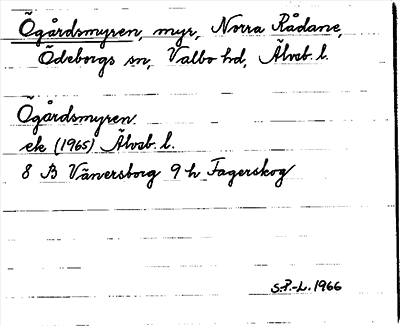 Ögårdsmyren, myr, Norra Rådane,
Ödeborgs sn, Valbo hd, Älvsb. l.
Ögårdsmyren
ek (1965) Älvsb. l.
8 B Vänersborg 9 h Fagerskog
S.P.-L. 1966